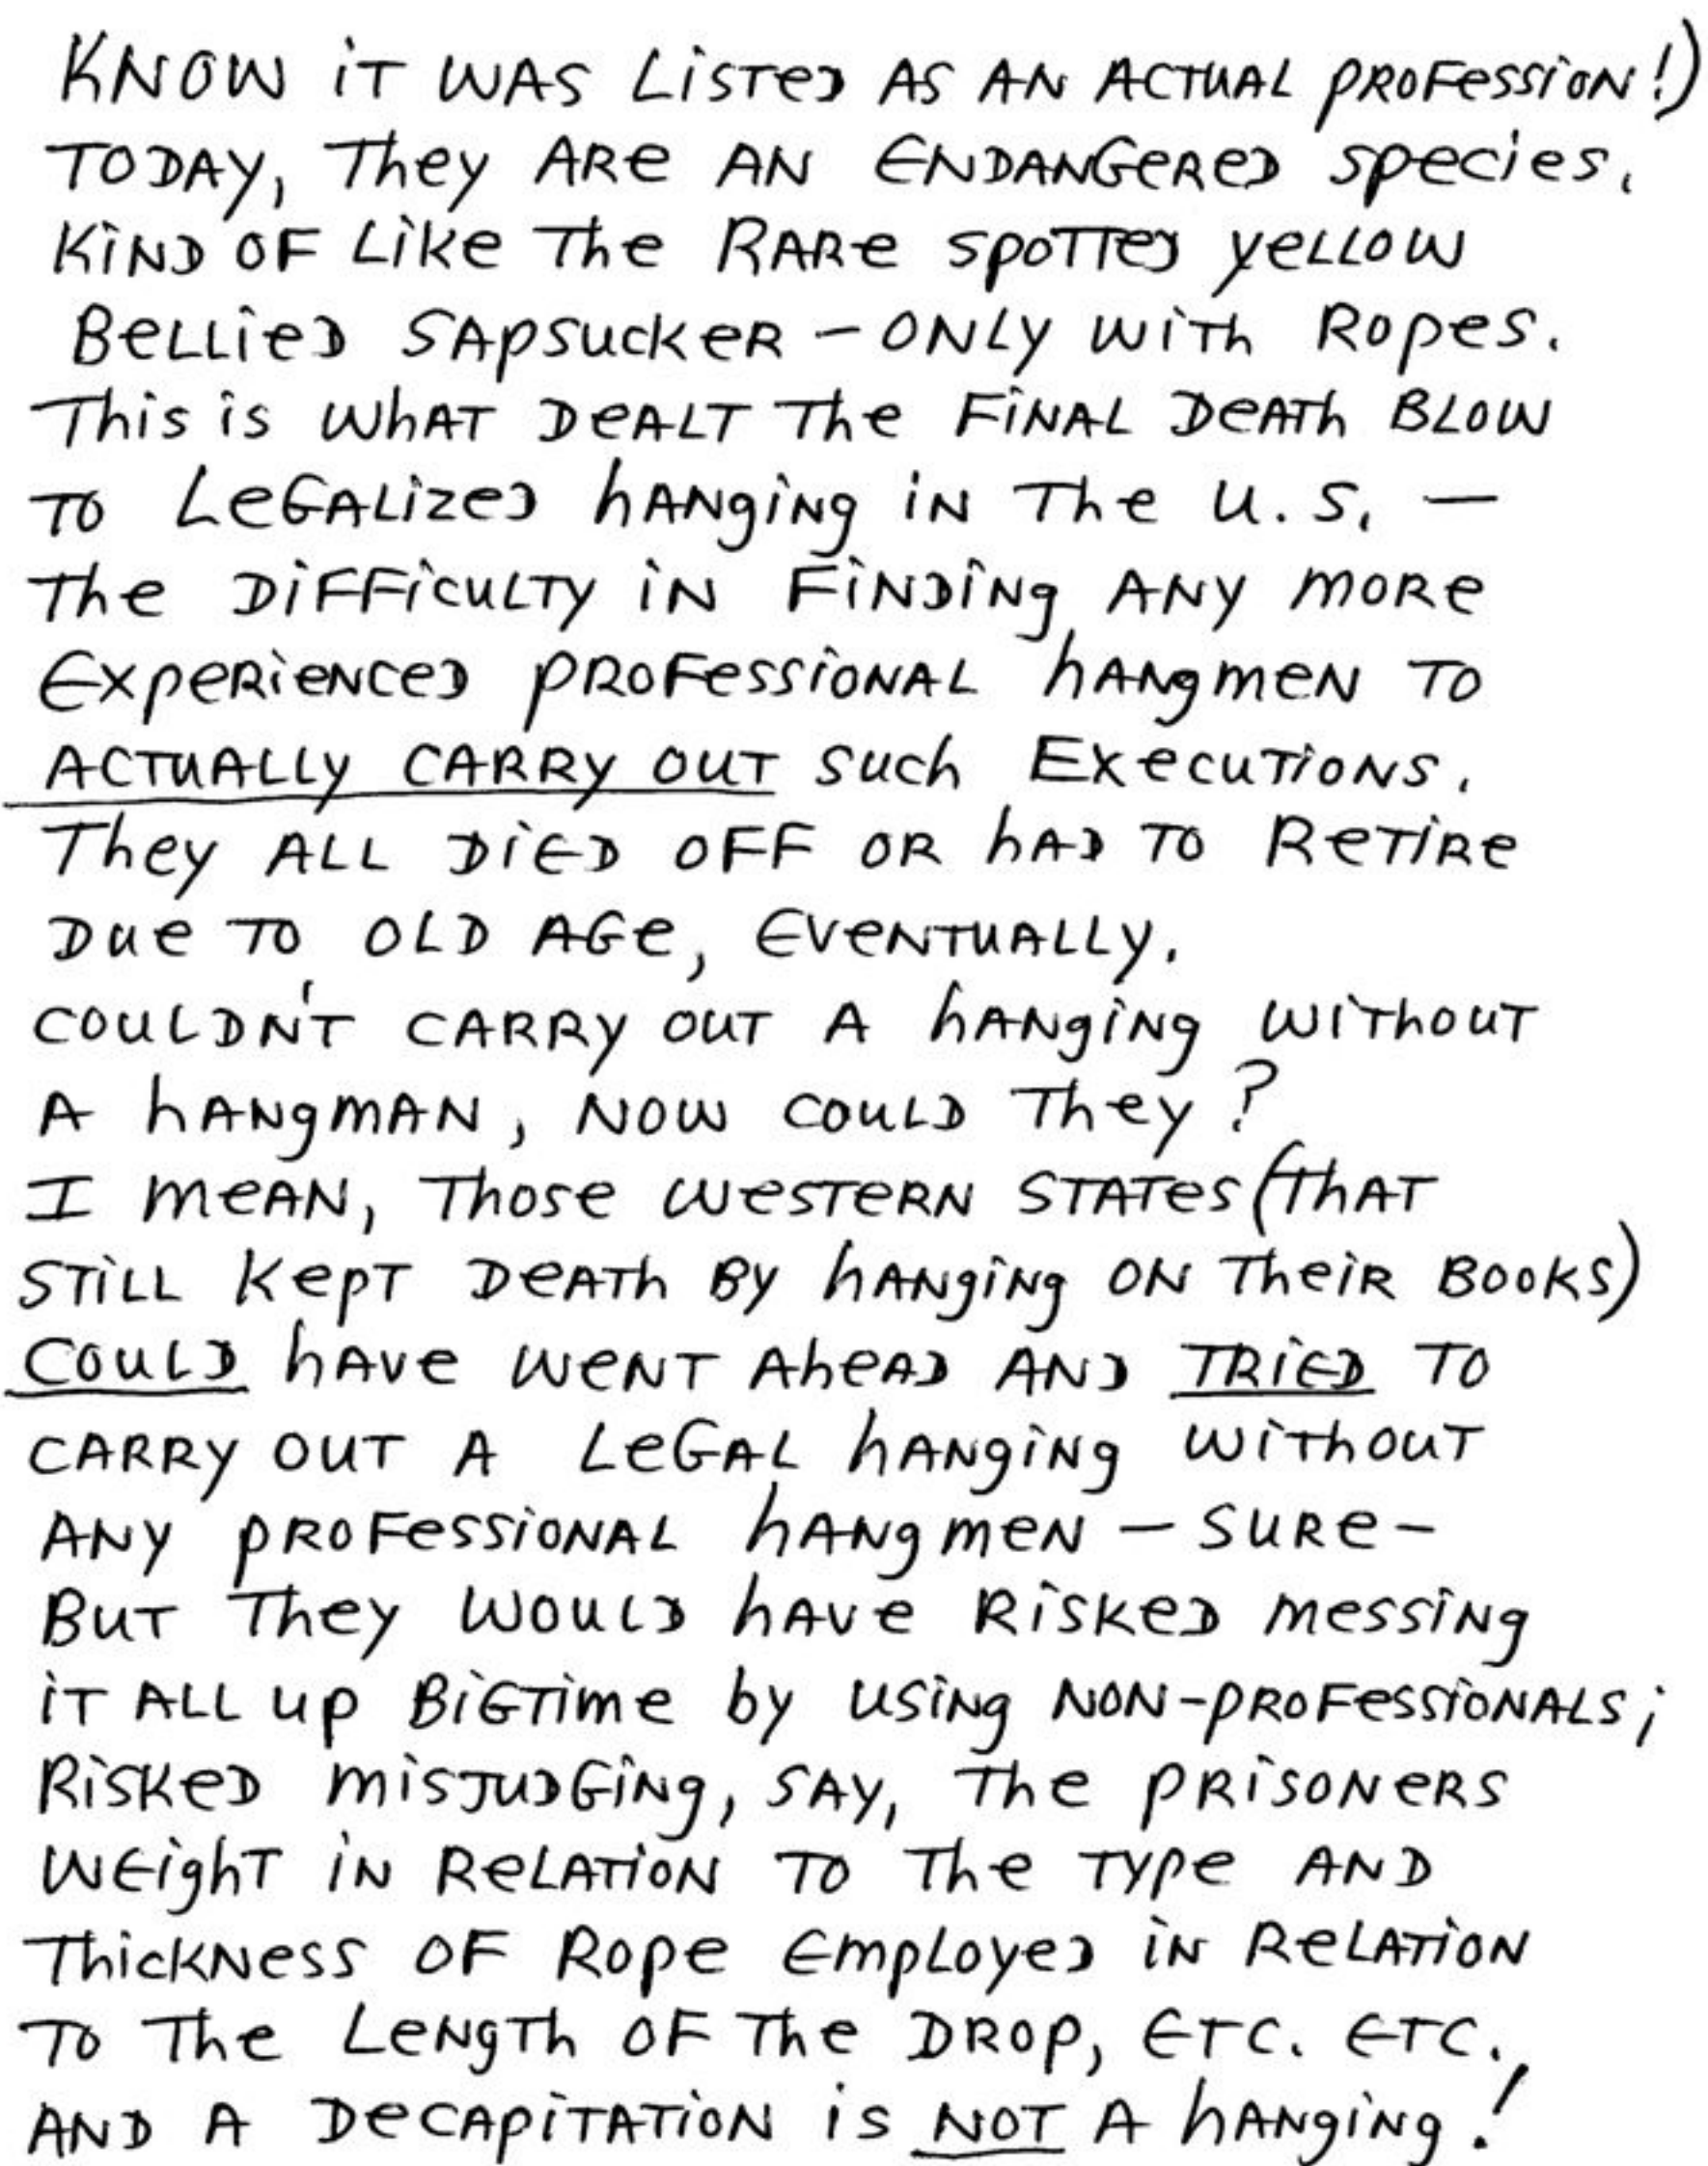 KNOW iT WAS LiSTED AS AN ACTUAL PROFessiON!)
TODAY, They ARe AN ENDANGeReD species,
KiND OF Like The RARe spoTTeD yeLLOW
BeLLieD SApsuckeR – ONLy WiTh Ropes.
This is WhAT DeALT The FiNAL DeATh BLOW
TO LeGALizeD hANgiNg iN The U.S. —
The DiFFicuLTy iN FiNDiNg ANy moRe
ExpeRieNceD pROFessiONAL hANgmeN TO
ACTuALLy CARRy OUT such ExecuTiONS.
They ALL DiED OFF OR hAD TO ReTiRe
Due TO OLD AGe, EveNTuALLy.
COULDN'T CARRy OUT A hANgiNg WiThouT
A hANgmAN, NOW COULD They?
I meAN, Those WesTeRN STATes (ThAT
STiLL KepT DeATh By hANgiNg ON TheiR BOOKS)
COULD hAve WeNT AheAD AND TRiED TO
CARRy OUT A LeGAL hANgiNg WiThouT
ANy pROFessiONAL hANgmeN – SURe –
BuT They WOULD hAve RiskeD messiNg
iT ALL up BiGTime by usiNg NON-pROFessiONALS;
RiskeD misJuDGiNg, SAy, The pRiSONeRS
WEighT iN ReLATiON TO The Type AND
ThickNess OF Rope EmpLoyeD iN ReLATiON
TO The LeNgTh OF The DROp, ETC. ETC.
AND A DecApiTATiON is NOT A hANgiNg!